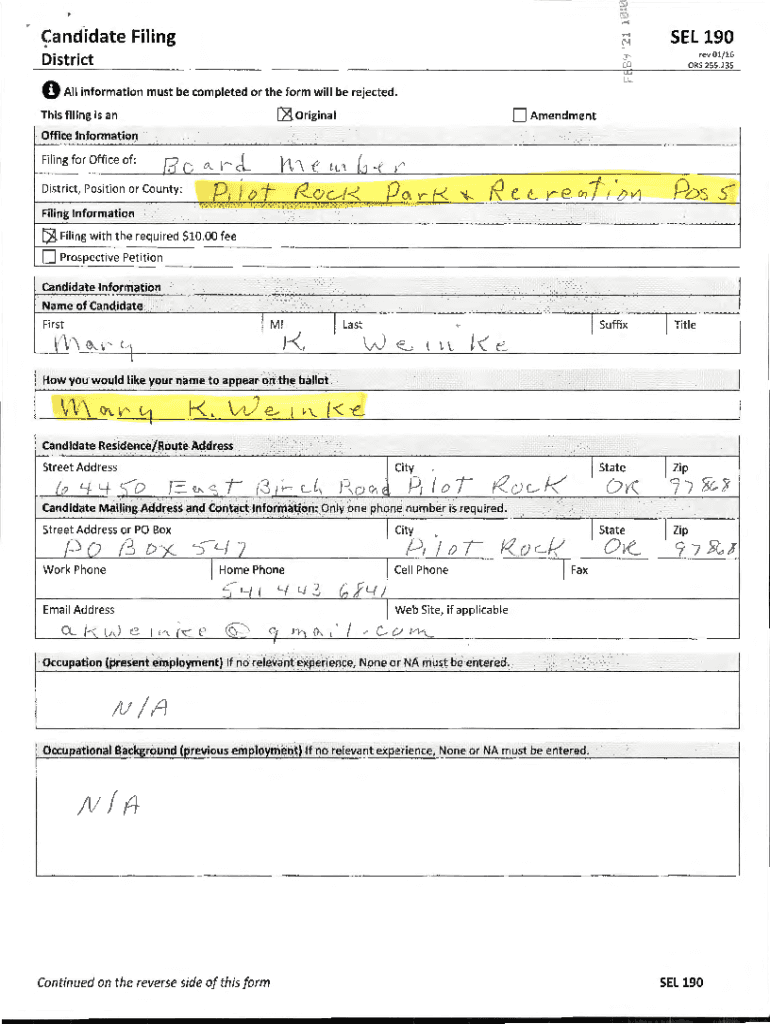 Candidate Filing
SEL 190
District
rev 01/16
ORS 255.235
All information must be completed or the form will be rejected.
This filing is an Original Amendment
Office Information
Filing for Office of: Board Member
District, Position or County: Pilot Rock Park & Recreation Pos 5
Filing Information
Filing with the required $10.00 fee
Prospective Petition
Candidate Information
Name of Candidate
First MI Last Suffix Title
Mary K. Weinke
How you would like your name to appear on the ballot
Mary K. Weinke
Candidate Residence/Route Address
Street Address City State Zip
64450 East Birch Road Pilot Rock OR 97868
Candidate Mailing Address and Contact Information: Only one phone number is required.
Street Address or PO Box City State Zip
PO Box 547 Pilot Rock OR 97868
Work Phone Home Phone Cell Phone Fax
541 443 6841
Email Address Web Site, if applicable
akweinke@gmail.com
Occupation (present employment) If no relevant experience, None or NA must be entered.
N/A
Occupational Background (previous employment) If no relevant experience, None or NA must be entered.
N/A
Continued on the reverse side of this form
SEL 190